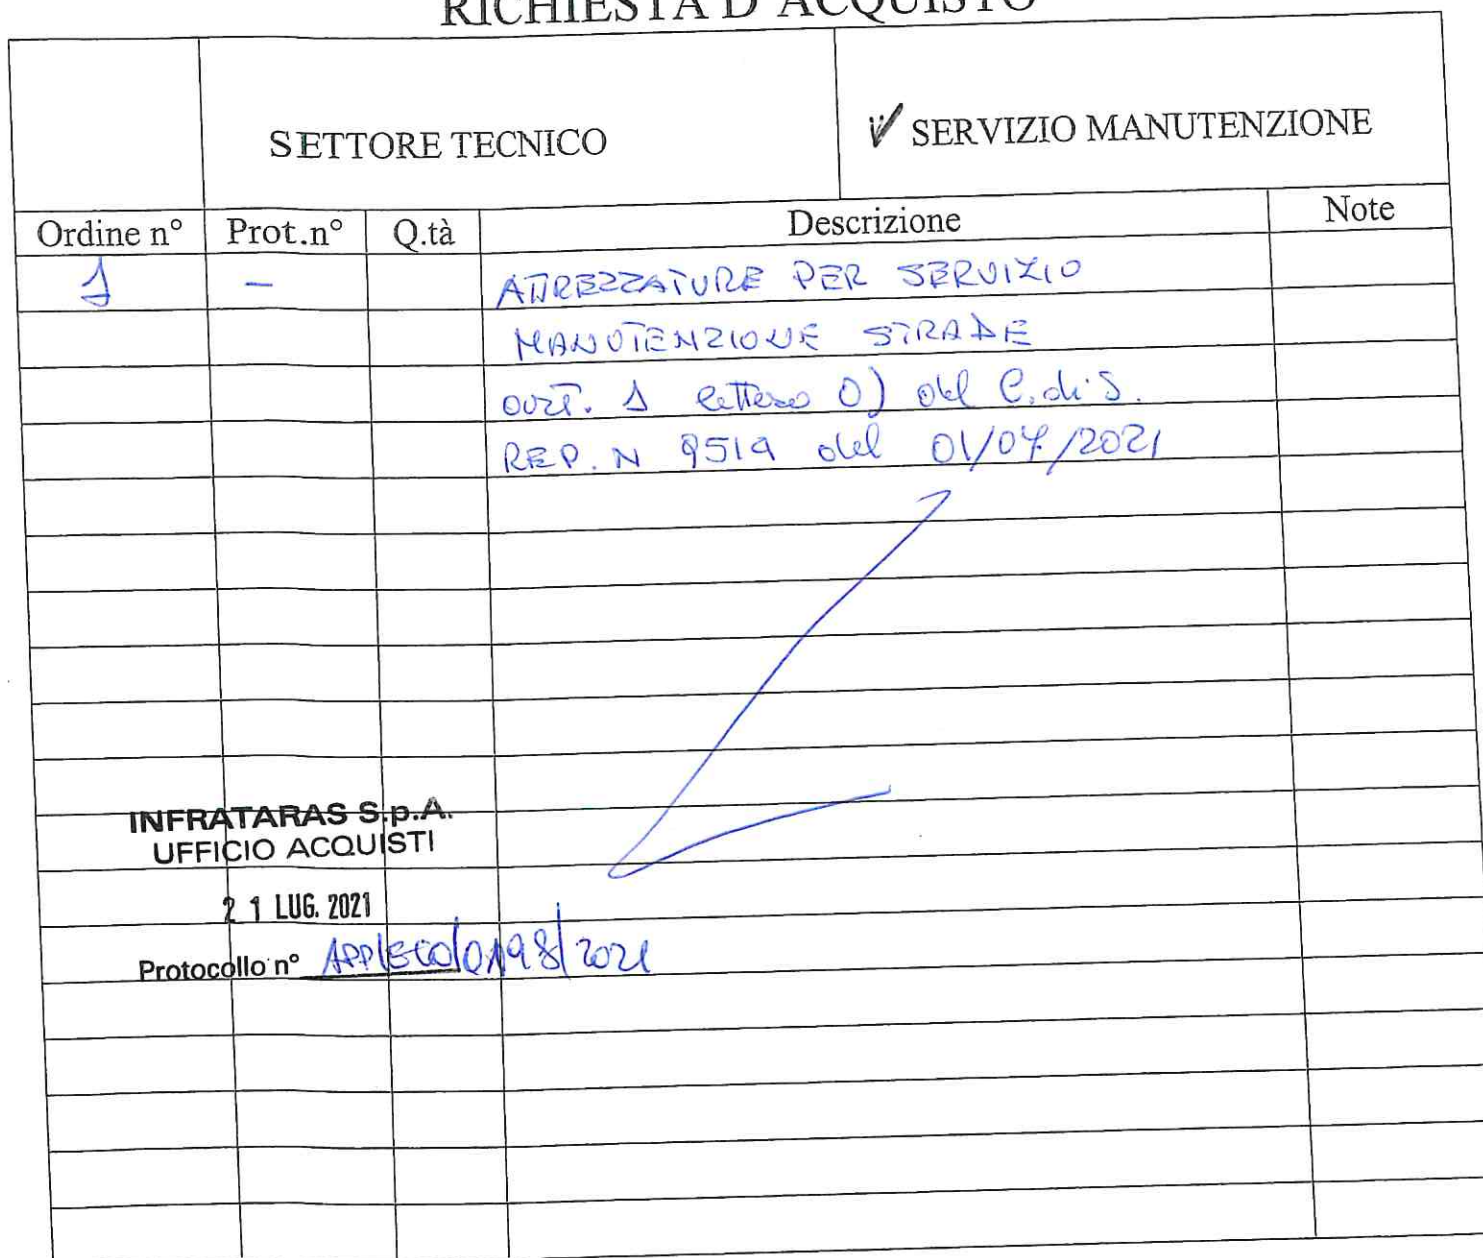 RICHIESTA D'ACQUISTO
SETTORE TECNICO
SERVIZIO MANUTENZIONE
Ordine n° Prot.n° Q.tà Descrizione Note
1 - ATTREZZATURE PER SERVIZIO
MANUTENZIONE STRADE
art. 1 lettera O) del C.di S.
REP. N 9519 del 01/07/2021
INFRATARAS S.p.A.
UFFICIO ACQUISTI
21 LUG. 2021
Protocollo n° APP/ECO/0198/2021